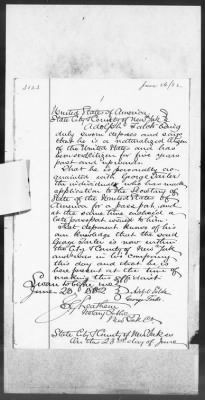 United States of America
State City & County of New York
Adolph being
duly sworn deposes and says
that he is a naturalized citizen
of the United States and has
been a citizen for five years
past and upwards
That he is personally ac-
quainted with George
the individual who has made
application to the Secretary of
State of the United States of
America for a passport and
at the same time enclosed a
late passport issued to him.
That deponent knows of his
own knowledge that the said
George is now within
the City & County of New York
and was in his company
this day and that he is
here present at the time of
making this affidavit
Sworn to before me
June 23
Notary Public
State City & County of New York ss
On the 23rd day of June